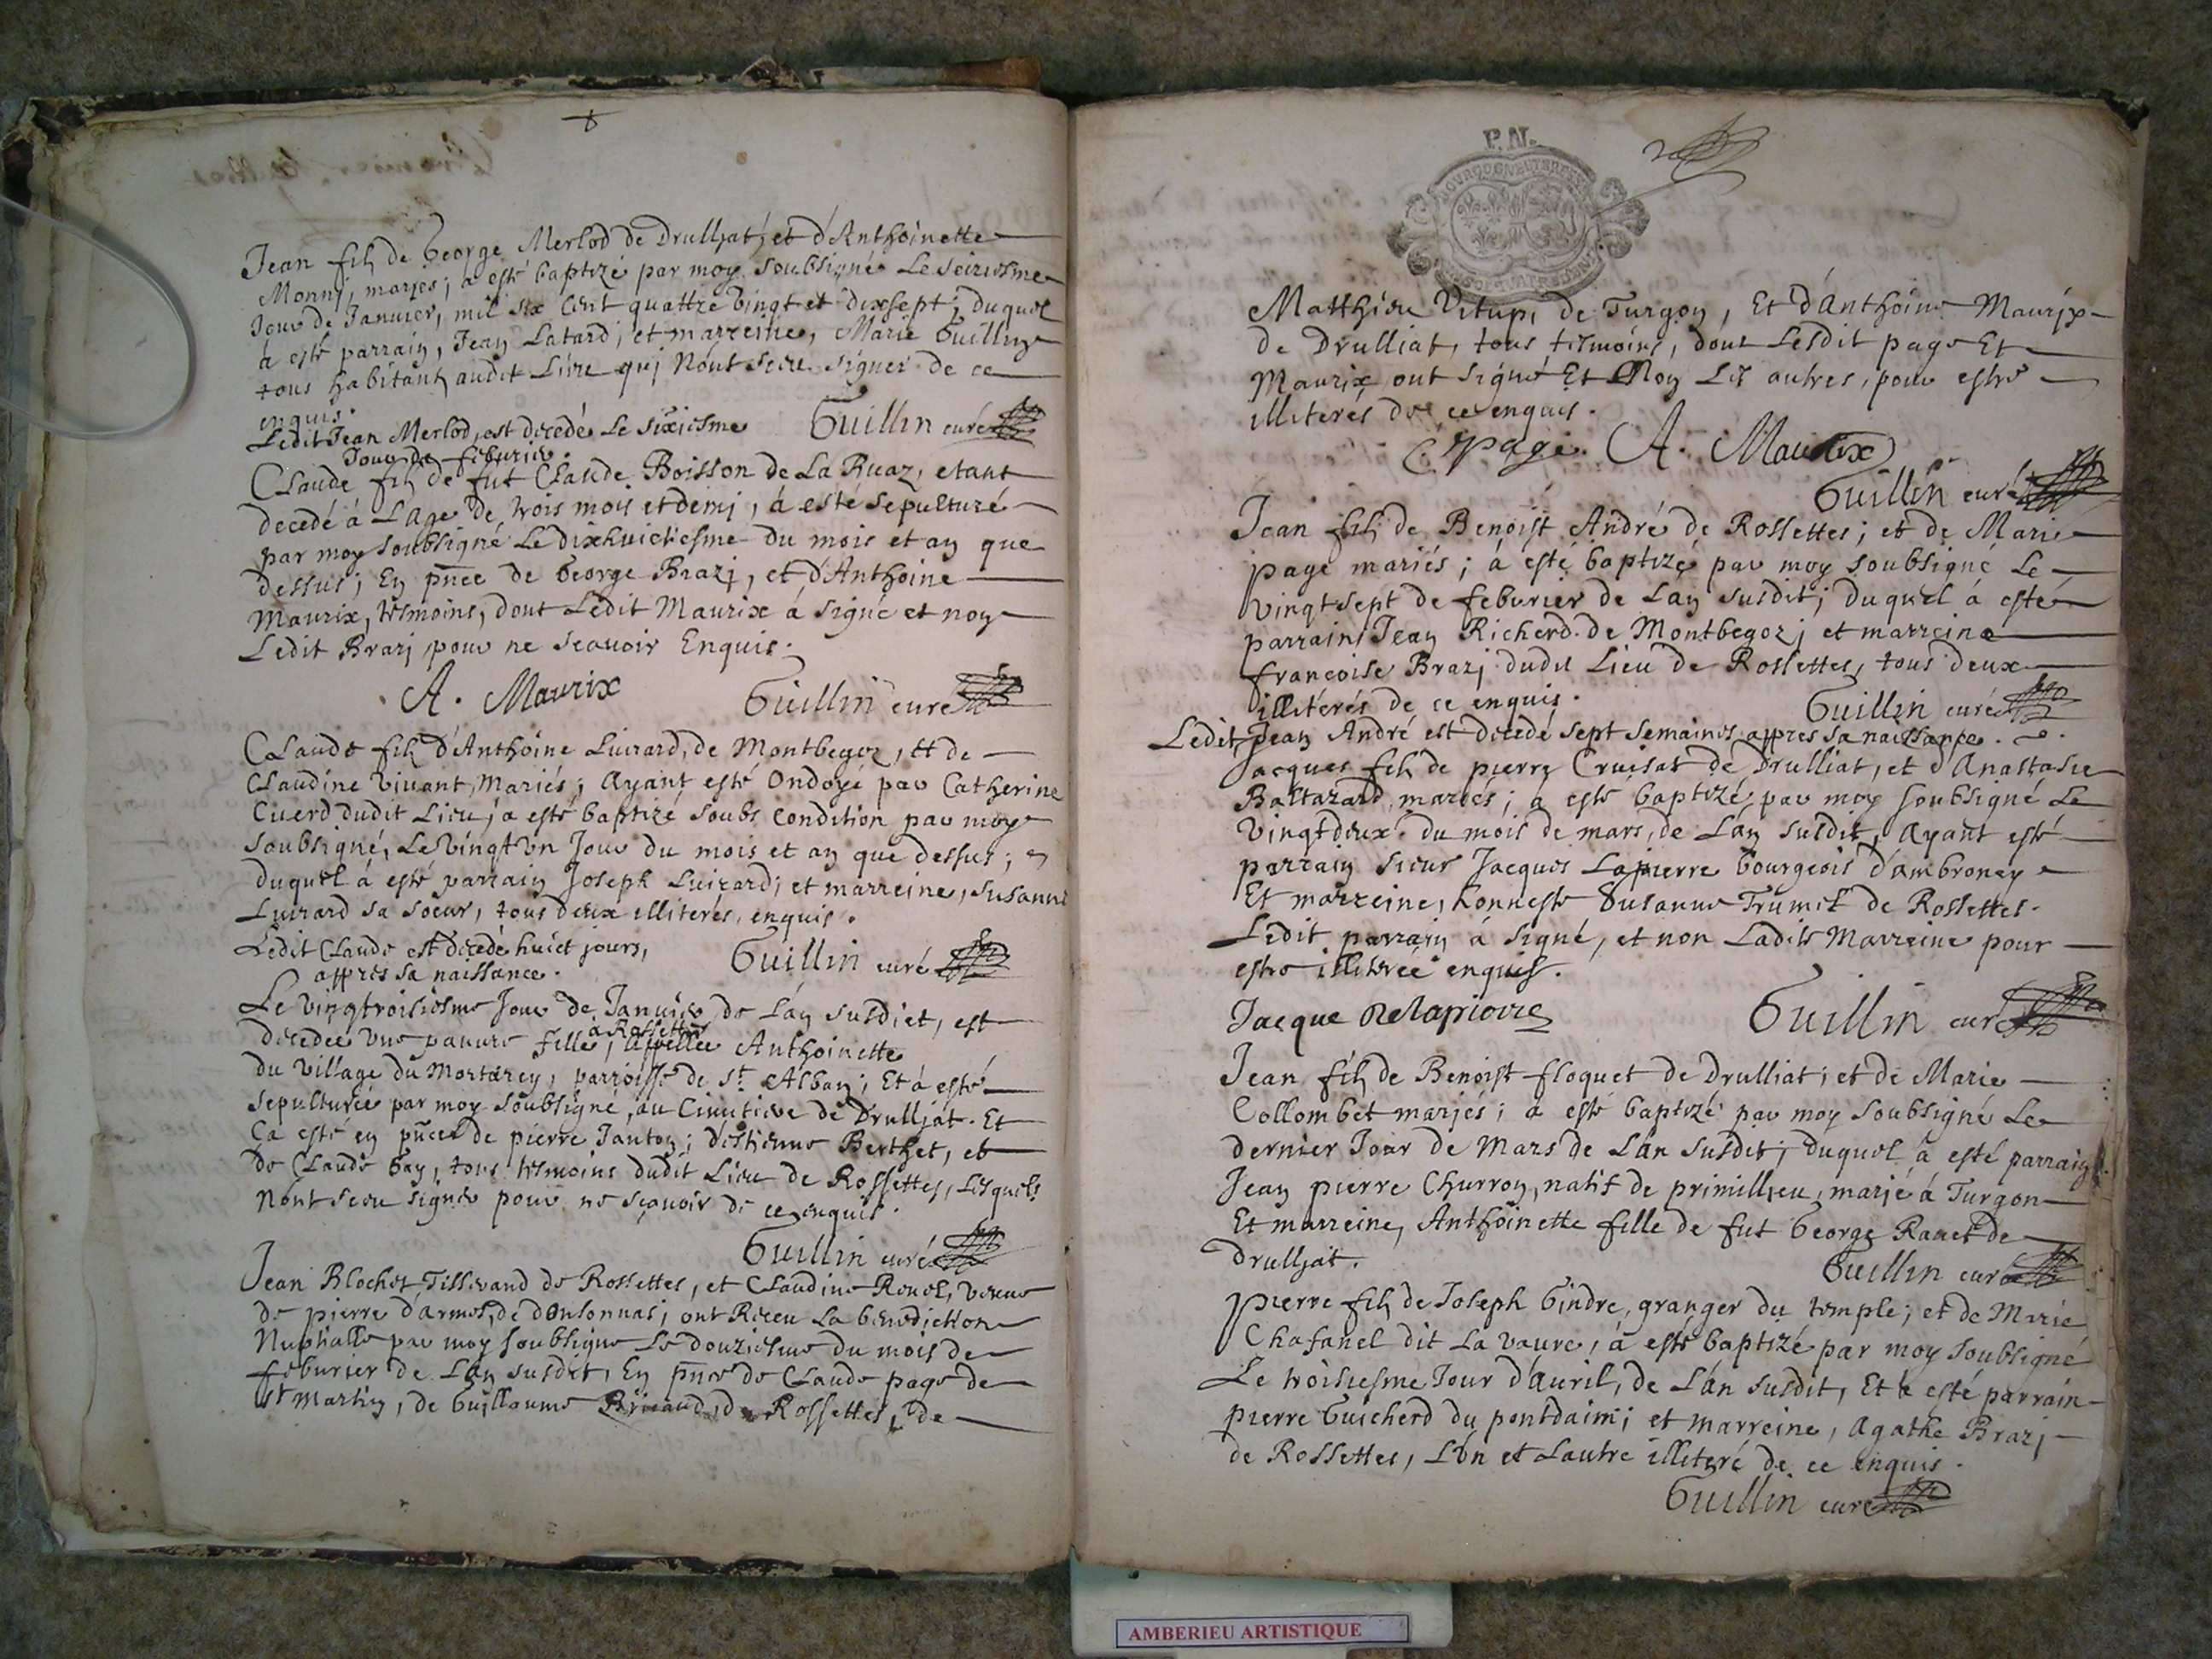 Jean fils de George Merlod de Drulliat, et d'Anthoinette
Monnj, mariés; a esté baptizé par moy soubsigné Le seiziesme
Jour de Janvier, mil six Cent quattre vingt et dixsept; duquel
à esté parrain, Jean Latard; et marreine, Marie Guillin
tous habitants audit Lieu quj N'ont sceu signer de ce
enquis.
Ledit Jean Merlod, est decedé Le sixiesme
Jour de feburier.
Guillin curé
Claude fils de fut Claude Boisson de La Ruaz, etant
decedé à L'age de trois mois et demj, à esté sepulturé
par moy soubsigné Le dixhuictiesme du mois et an que
dessus; En pnce de George Brazj, et d'Anthoine
Maurix, tesmoins, dont Ledit Maurix à signé et non
Ledit Brazj pour ne scavoir Enquis.
A. Maurix
Guillin curé
Claude fils d'Anthoine Luizard, de Montbegoz, et de
Claudine Vivant, Mariés; Ayant esté Ondoyé par Catherine
Cuerd dudit Lieu, a esté baptizé soubs condition par moy
soubsigné, Le Vingt Vn Jour du mois et an que dessus;
duquel à esté parrain Joseph Luizard; et marreine, Susanne
Luizard sa soeur, tous deux illiterés, enquis.
Ledit Claude est decedé huict jours,
appres sa naissance.
Guillin curé
Le vingtroisiesme Jour de Janvier de L'an susdict, est
à Rossettes
decedée Vne pauure fille, appellée Anthoinette
du Village du Mortarey, parroisse de St Alban; Et à esté
sepulturée par moy soubsigné, au Cimetiere de Drulljat. Et
Ca esté en pnce de pierre Janton; d'Estienne Berthet, et
de Claude Gay, tous tesmoins dudit Lieu de Rossettes, Lesquels
N'ont sceu signer pour ne sçavoir de ce enquis.
Guillin curé
Jean Blochet Tisserand de Rossettes, et Claudine Revel, veuue
de pierre d'armes, de donsonnas; ont Receu La benediction
Nuptialle par moy soubsigne Le douziesme du mois de
feburier de L'an susdit, En pnce de Claude page de
St Martin, de Guillaume de Rossettes, de
P.N.
2
Matthieu Vitup, de Turgon, Et d'Anthoine Maurix
de Drulliat, tous tesmoins, dont Lesdit page Et
Maurix ont signé Et Non Les autres, pour estre
illiteres de ce enquis.
C page. A. Maurix
Guillin curé
Jean fils de Benoist André de Rossettes; et de Marie
page mariés; à esté baptizé par moy soubsigné Le
Vingtsept de feburier de L'an susdit; duquel à esté
parrain Jean Richerd de Montbegoz; et marreine
francoise Brazj dudit Lieu de Rossettes, tous deux
illiterés de ce enquis.
Guillin curé
Ledit Jean André est decedé sept semaines appres sa naissance.
Jacques fils de pierre Cruisat de Drulliat, et d'Anastasie
Baltazard, mariés; à esté baptizé par moy soubsigné Le
Vingtdeux du mois de mars, de L'an susdit, ayant esté
parrain sieur Jacques Lapierre bourgeois d'ambronay
Et marreine, honneste Susanne Trumet de Rossettes.
Ledit parrain à signé, et non Ladite Marreine pour
estre illiterée enquise.
Jacque Delapierre
Guillin curé
Jean fils de Benoist floquet de Drulliat; et de Marie
Collombet marjés; a esté baptizé par moy soubsigné Le
dernier Jour de Mars de L'an susdit; duquel à esté parrain
Jean pierre Churron, natif de primillieu, marjé à Turgon
Et marreine, Anthoinette fille de fut George Rauet de
Drulljat.
Guillin curé
pierre fils de Joseph Gindre, granger du temple; et de Marie
Chafanel dit La vaure, à esté baptizé par moy soubsigné
Le troisiesme Jour d'Auril, de L'an susdit, Et à esté parrain
pierre Guicherd du pontdaim; et marreine, agathe Brazj
de Rossettes, L'vn et L'autre illiteré de ce enquis.
Guillin curé
AMBERIEU ARTISTIQUE